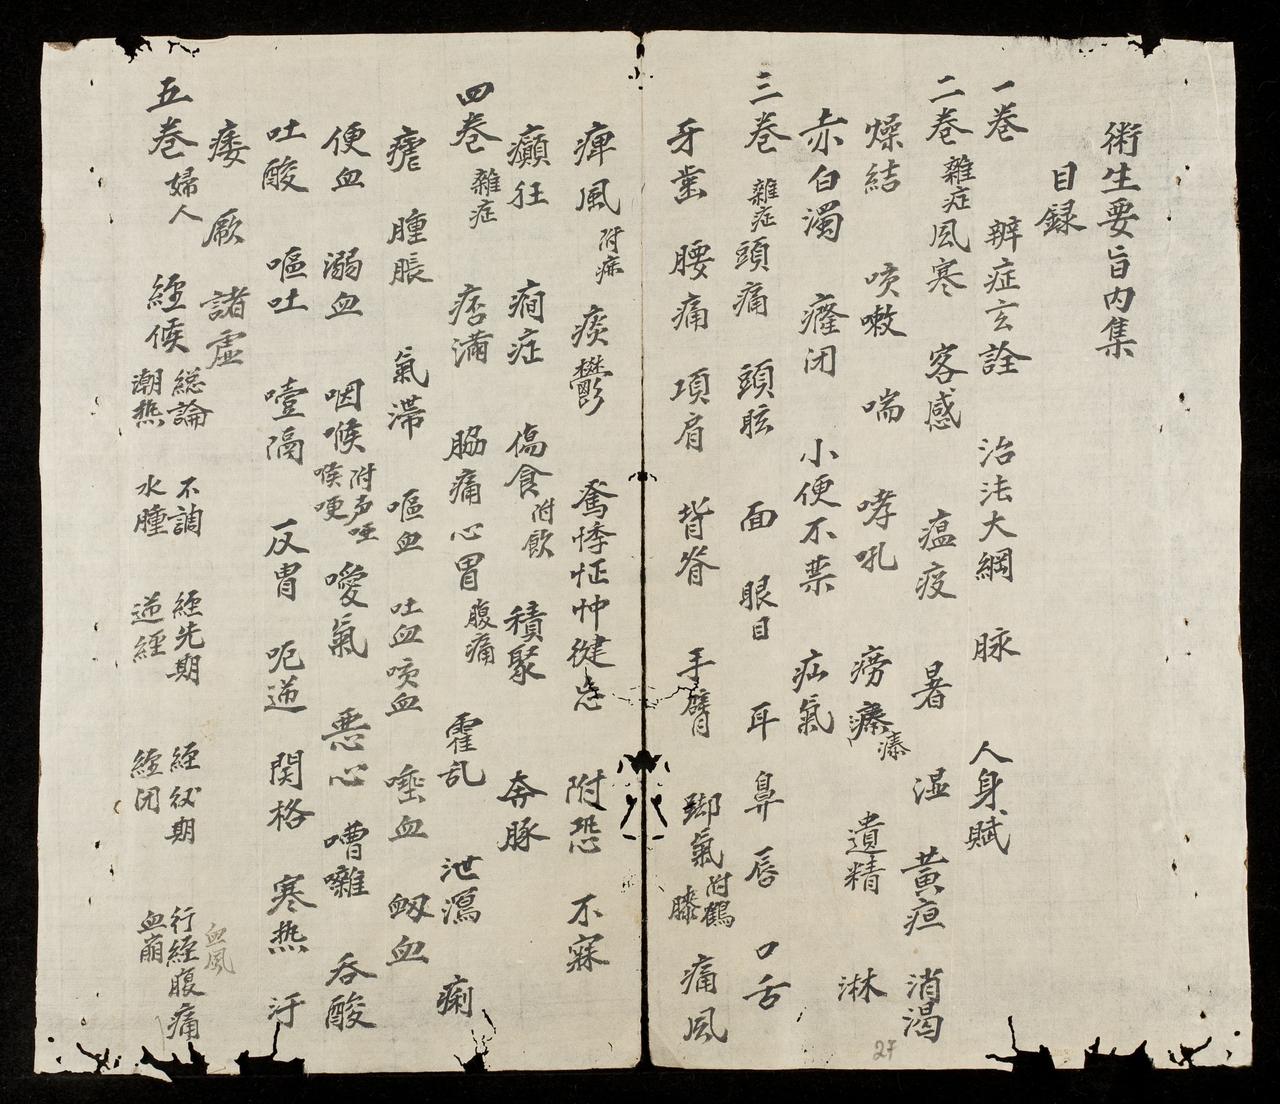 術生要旨內集
目録
一巻 辨症玄詮 治法大綱 脉 人身賦
二巻 雜症 風寒 客感 瘟疫 暑 湿 黄疸 消渴
燥結 咳嗽 喘 哮吼 癆瘵 瘵 遺精 淋
赤白濁 癃闭 小便不禁 疝氣
三巻 雜症 頭痛 頭眩 面 眼目 耳 鼻 唇 口舌
牙歯 腰痛 項肩 背脊 手臂 脚氣 附鶴膝 痛風
痺風 附麻 痰 鬱 驚悸怔忡健忘 附恐 不寐
癲狂 癎症 傷食 附飲 積聚 奔豚
四巻 雜症 痞満 脇痛 心胃 腹痛 霍乱 泄瀉 痢
瘧 腫脹 氣滞 嘔血 吐血 咳血 唾血 衂血
便血 溺血 咽喉 附声哑 喉哽 噯氣 悪心 嘈囃 吞酸
吐酸 嘔吐 噎隔 反胃 呃逆 関格 寒熱 汗
痿 厥 諸虚
五巻 婦人 經候 総論 不調 經先期 經後期 行經腹痛
潮热 水腫 逆經 經闭 血崩
血風
27